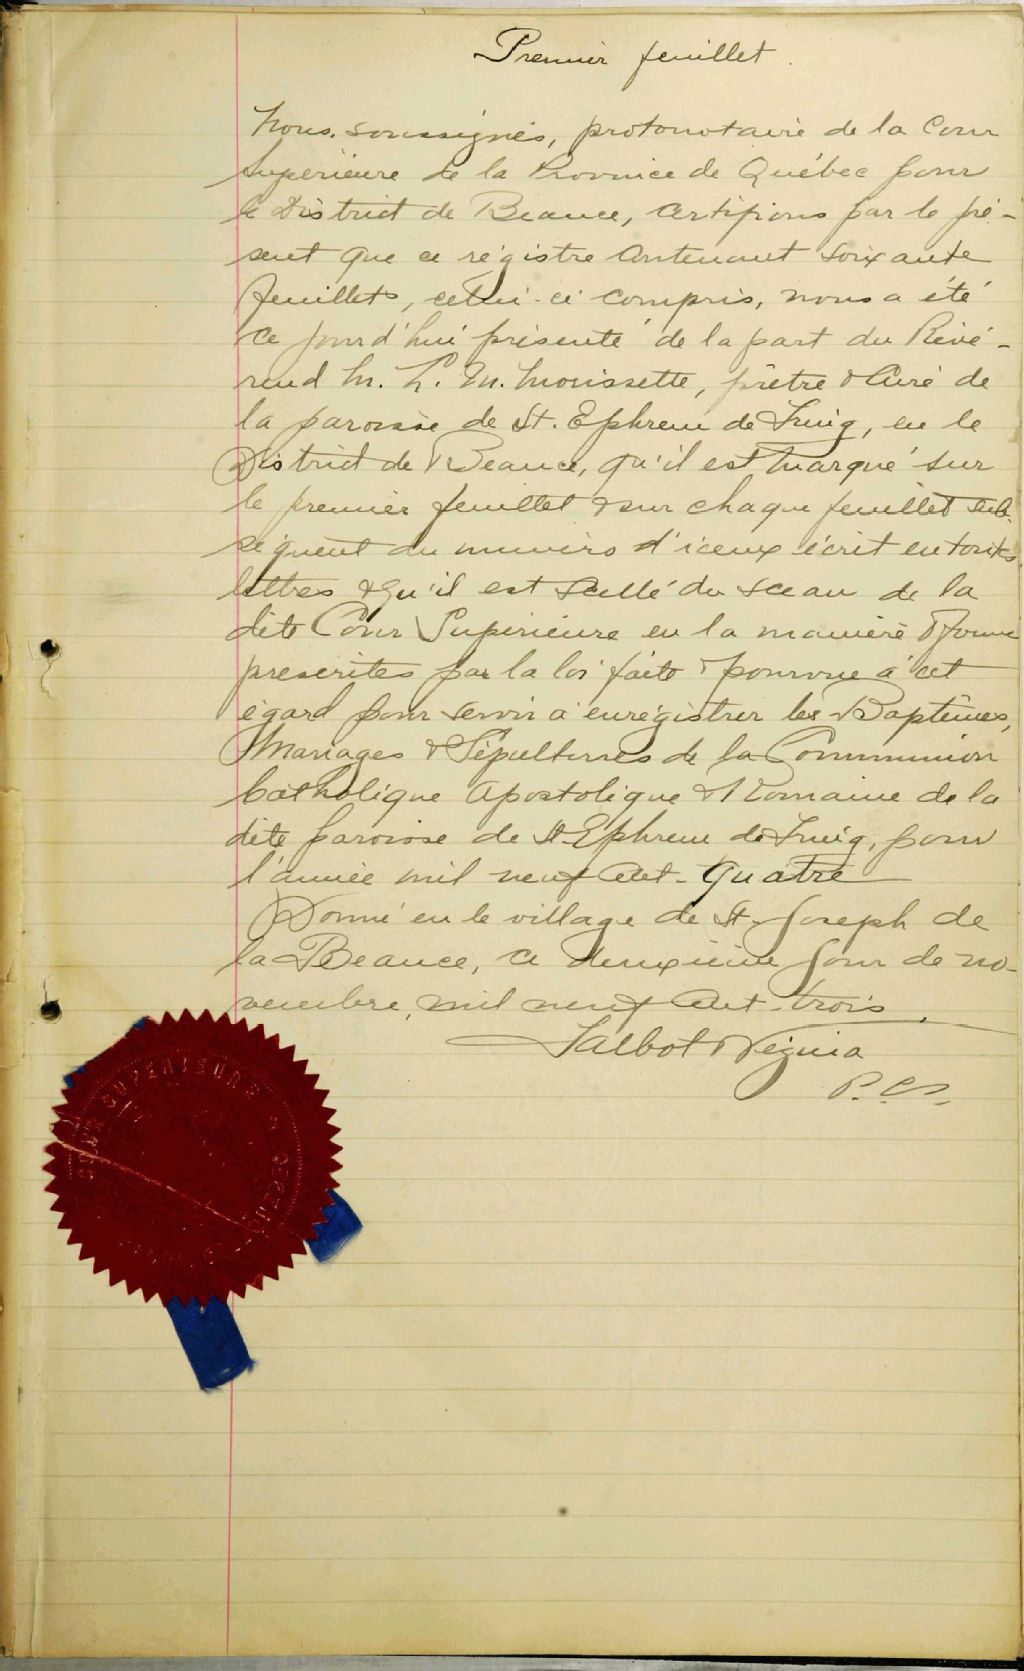 Premier feuillet.
Nous, soussignés, protonotaire de la Cour
Supérieure de la Province de Québec pour
le District de Beauce, certifions par le pré-
sent que ce régistre contenant soixante
feuillets, celui-ci compris, nous a été
ce jourd'hui présenté de la part du Révé-
rend M. L. M. Morissette, prêtre & Curé de
la paroisse de St. Ephrem de Tring, en le
District de Beauce, qu'il est marqué sur
le premier feuillet & sur chaque feuillet sub-
séquent du numéro d'iceux écrit en toutes
lettres & qu'il est scellé du sceau de la
dite Cour Supérieure en la manière & forme
prescrites par la loi faite & pourvue à cet
égard pour servir à enrégistrer les Baptêmes,
Mariages & Sépultures de la Communion
Catholique Apostolique & Romaine de la
dite paroisse de St Ephrem de Tring, pour
l'année mil neuf cent-quatre
Donné en le village de St Joseph de
la Beauce, ce deuxième jour de no-
vembre, mil neuf cent-trois.
Talbot & Vézina
P.C.S.
COUR SUPERIEURE